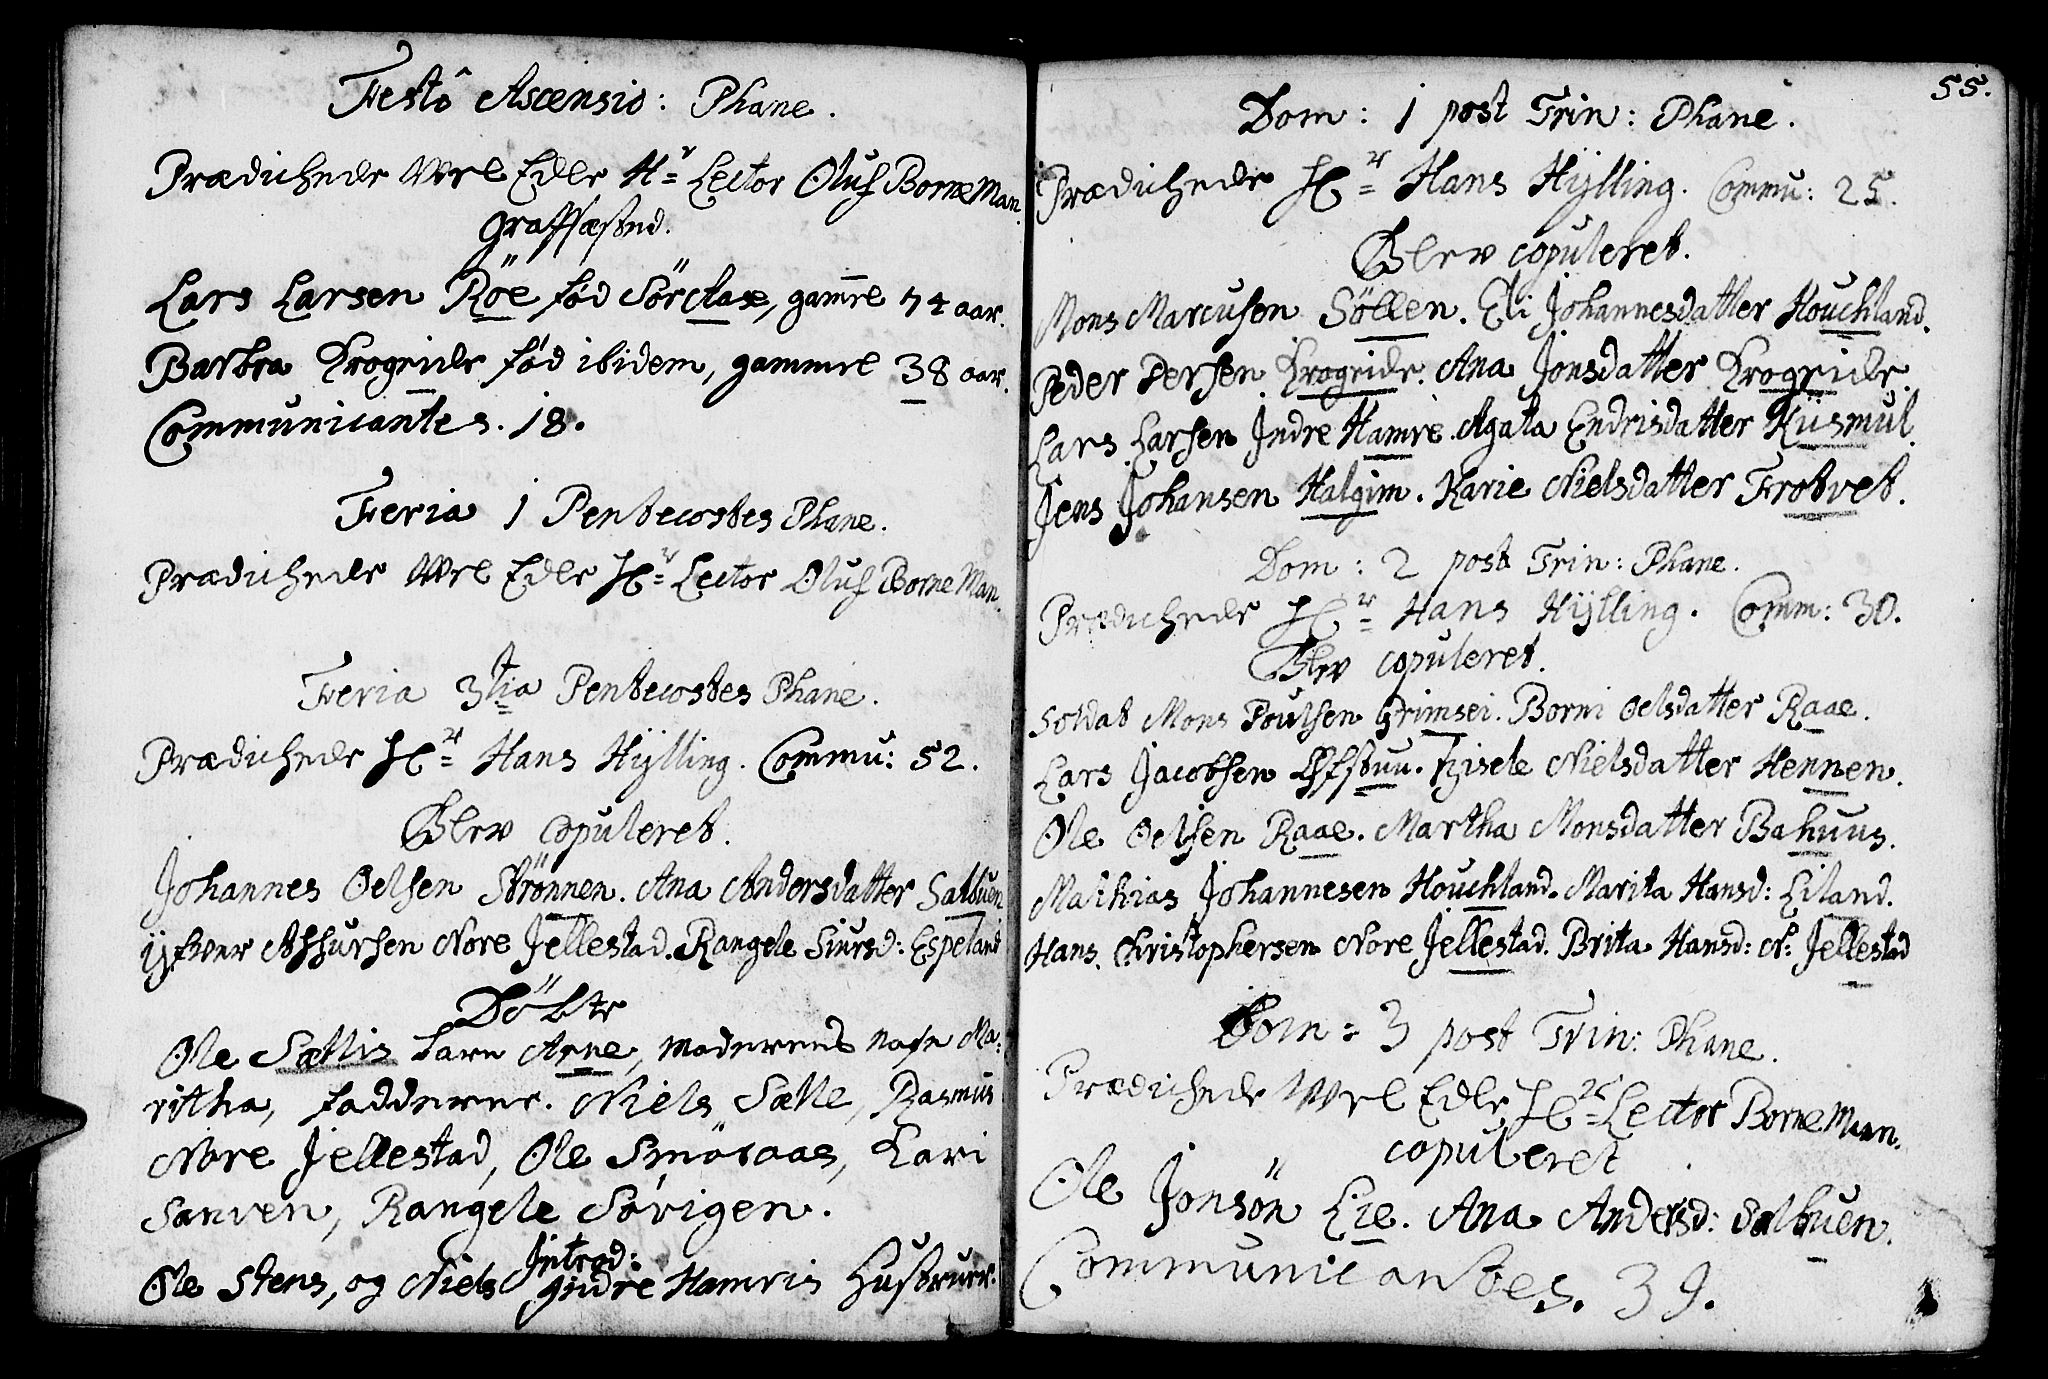 Festô Ascensio: Phane.
Prædichede Wel Edle Hr= Lector Oluf BorneMan.
Graffæsted.
Lars Larsen Röe fød Sörclase, gamel 74 aar.
Barbra Krogeide fød ibidem, gammel 38 aar.
Communicantes. 18.
Feria 1 Pentecostes Phane.
Prædichede Wel Edle Hr= Lector Oluf BorneMan.
Feria 3tia Pentecostes Phane.
Prædichede Hr= Hans Hÿlling. Commu: 52.
Blev Copuleret.
Johannes Oelsen Strönnen. Ana Andersdatter Salbuen
Nore Jellestad. Rangele Siursd: Espeland
Döbte
Ole Sættis barn Arne, Moderens Nafn Ma:
ritha, Fadderne. Niels Sætte, Rasmus
Nore Jellestad, Ole Smöraas, Kari
Sanven, Rangele Sørigen.
Introd:
Ole Stens, og Niels Jndre Hamris Hustruer.
55.
Dom: 1 post Trin: Phane.
Prædichede Hr= Hans Hÿlling. Commu: 25.
Blev copuleret.
Mons Marcusen Söllen. Eli Johannesdatter Houchland.
Peder Persen Krogeide. Ana Jonsdatter Krogeide.
Lars Larsen Jndre Hamre. Agata Endrisdatter Kiismul.
Jens Johansen Halgim. Karie Nielsdatter Trotvet.
Dom: 2 post Trin: Phane.
Prædichede Hr= Hans Hÿlling. Comm: 30.
Blev copuleret.
Soldat Mons Poulsen Grimsei. Borni Oelsdatter Raae.
Lars Jacobsen Gisele Nielsdatter Hennen.
Ole Oelsen Raae. Martha Monsdatter Bahuus.
Mathias Johannesen Houchland. Marita Hansd: Liland.
Hans Christophersen Nore Jellestad. Brita Hansd: No: Jellestad
Dom: 3 post Trin: Phane.
Prædichede Wel Edle Hr= Lector BorneMan.
copuleret
Ole Jonsön Lie. Ana Andersd: Salbuen.
Communicantes. 39.